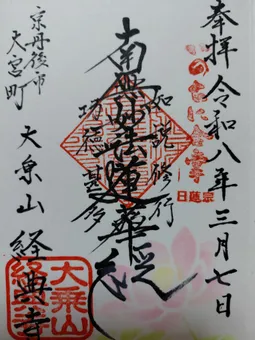 奉拝 令和八年三月七日
如説修行
南無妙法蓮華経
功徳甚多
京丹後市
大宮町
大乗山 経典寺
日蓮宗
大乗山
経典寺